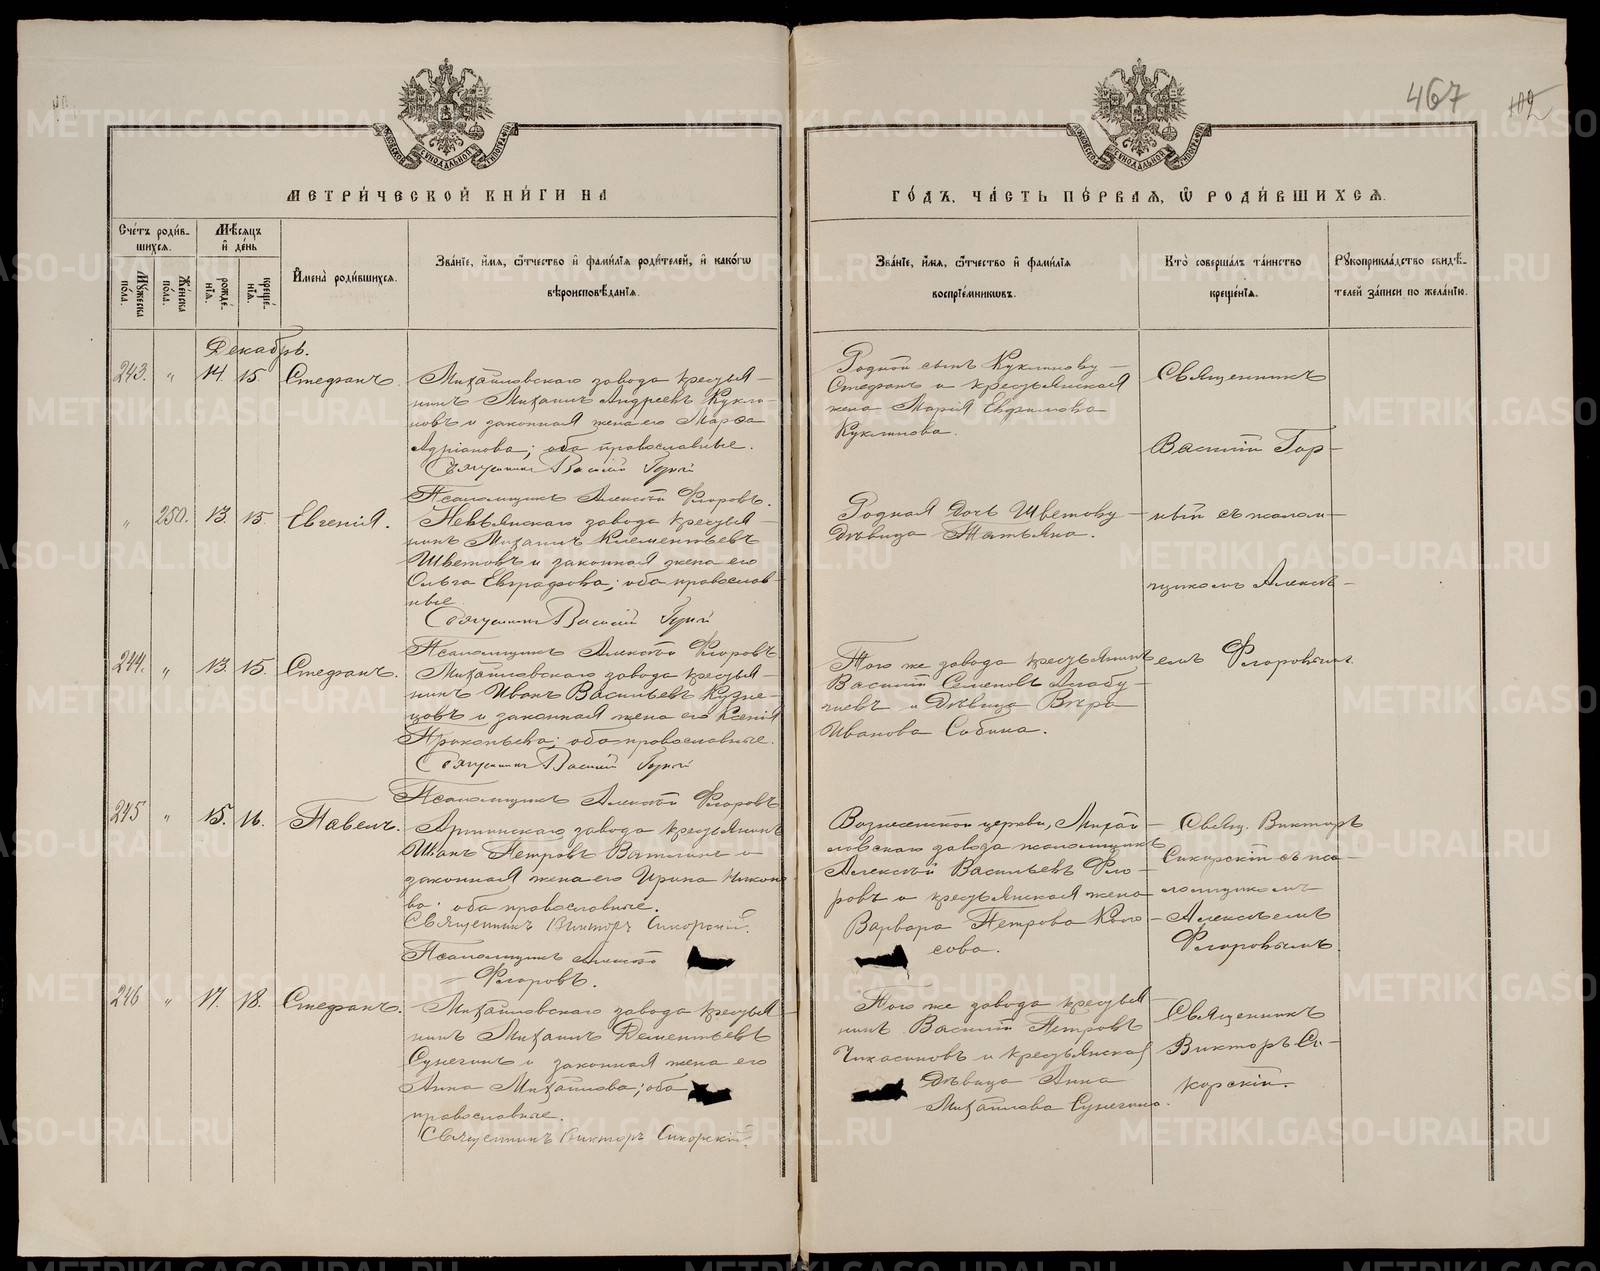 467
102
МЕТРИ́ЧЕСКОЙ КНИ́ГИ НА
ГО́ДЪ, ЧА́СТЬ ПЕ́РВАЯ, Ѽ РОДИ́ВШИХСЯ.
Сче́тъ роди́в-
шихся.
Му́жеска по́ла.
Же́нска по́ла.
Мѣ́сяцъ
и҆ де́нь
рожде́-
нїя.
креще́-
нїя.
И҆мена̀ роди́вшихся.
Зва́нїе, и҆́мя, ѻ҆́тчество и҆ фами́лїя роди́телей, и҆ како́гѡ
вѣроисповѣ́данїя.
Зва́нїе, и҆́мя, ѻ҆́тчество и҆ фами́лїя
воспрїе́мникѡвъ.
Кто̀ соверша́лъ та́инство
креще́нїя.
Рꙋкоприкла́дство свидѣ́-
телей за́писи по жела́нїю.
Декабрь.
243. " 14. 15. Стефанъ.
Михайловскаго завода кресть­я-
нинъ Михаилъ Андреевъ Кукли-
новъ и законная жена его Марѳа
Адріанова; оба православные.
Священникъ Василій Горный
Псаломщикъ Алексѣй Флоровъ.
Родной сынъ Куклинову
Стефанъ и крестьянская
жена Марія Ефимова
Куклинова.
Священникъ
Василій Гор-
ный съ псалом-
щикомъ Алексѣ-
емъ Флоровымъ.
" 250. 13. 15. Евгенія.
Невьянскаго завода крестья-
нинъ Михаилъ Климентьевъ
Шветовъ и законная жена его
Ольга Евграфова; оба православ-
ные
Священникъ Василій Горный
Псаломщикъ Алексѣй Флоровъ
Родная дочь Шветову
дѣвица Татьяна.
244. " 13. 15. Стефанъ.
Михайловскаго завода крестья-
нинъ Иванъ Васильевъ Кузне-
цовъ и законная жена его Ксенія
Прокопьева; оба православные.
Священникъ Василій Горный
Псаломщикъ Алексѣй Флоровъ
Того же завода крестьянинъ
Василій Семеновъ
и дѣвица Вѣра
Иванова Собина.
245 " 15. 16. Павелъ.
Артинскаго завода крестьянинъ
Иванъ Петровъ и
законная жена его Ирина Никоно-
ва; оба православные.
Священникъ Викторъ Сикорскій.
Псаломщикъ Алексѣй
Флоровъ.
Вознесенской церкви, Михай-
ловскаго завода псаломщикъ
Алексѣй Васильевъ Фло-
ровъ и крестьянская жена
Варвара Петрова
сова.
Свящ. Викторъ
Сикорскій съ пса-
ломщикомъ
Алексѣемъ
Флоровымъ.
246 " 17. 18. Стефанъ.
Михайловскаго завода крестья-
нинъ Михаилъ Дементьевъ
Сунегинъ и законная жена его
Анна Михайлова; оба
православные.
Священникъ Викторъ Сикорскій.
Того же завода крестья-
нинъ Василій Петровъ
Чикасиновъ и крестьянская
дѣвица Анна
Михайлова Сунегина.
Священникъ
Викторъ Си-
корскій.
METRIKI.GASO-URAL.RU